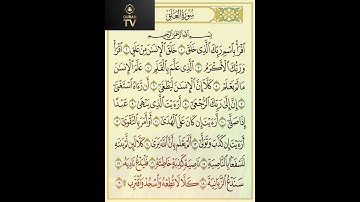 QURAN
TV
سورة العلق
بسم الله الرحمن الرحيم
اقرأ باسم ربك الذي خلق ١ خلق الإنسن من علق ٢ اقرأ
وربك الأكرم ٣ الذي علم بالقلم ٤ علم الإنسن
ما لم يعلم ٥ كلا إن الإنسن ليطغى ٦ أن رءاه استغنى
٧ إن إلى ربك الرجعى ٨ أرءيت الذي ينهى ٩ عبدا
إذا صلى ١٠ أرءيت إن كان على الهدى ١١ أو أمر بالتقوى ١٢
أرءيت إن كذب وتولى ١٣ ألم يعلم بأن الله يرى ١٤ كلا لئن لم ينته
لنسفعا بالناصية ١٥ ناصية كذبة خاطئة ١٦ فليدع ناديه ١٧
سندع الزبانية ١٨ كلا لا تطعه واسجد واقترب ١٩